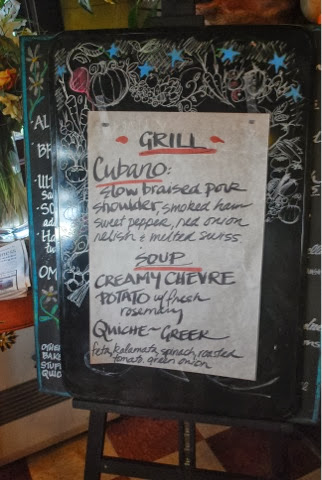 GRILL
Cubano:
slow braised pork
shoulder, smoked ham
sweet pepper, red onion
relish + melted swiss
SOUP
CREAMY CHEVRE
POTATO w/ fresh
rosemary
QUICHE ~ GREEK
feta, kalamata, spinach, roasted
tomato, green onion